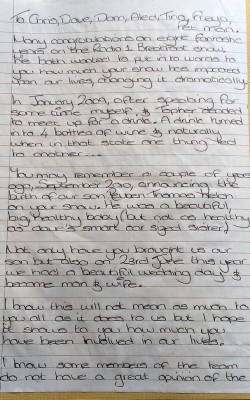 To Chris, Dave, Dom, Aled, Tina, Freya,
Pet man.
Many congratulations on eight fantastic
years on the Radio 1 Breakfast show.
We both wanted to put in to words to
you how much your show has impacted
upon our lives, changing it dramatically.
In January 2009, after speaking for
some time myself & Topher decided
to meet up for a drink. A drink turned
in to 4 bottles of wine & naturally
when in that state one thing led
to another...
You may remember a couple of years
ago, September 2010, announcing the
birth of our son Thomas
on your show. He was a beautiful,
big, healthy baby (but not as healthy
as Dave's smart car sized sister)
Not only have you brought us our
son but also on 23rd June this year
we had a beautiful wedding day &
became man & wife.
I know this will not mean as much to
you all as it does to us but I hope
it shows to you how much you
have been involved in our lives.
I know some members of the team
do not have a great opinion of the